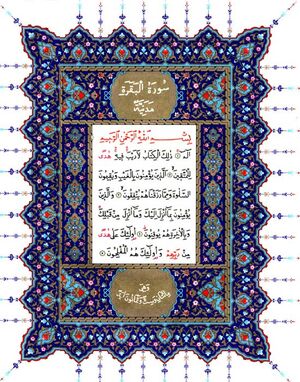 سورة البقرة
مدنية
بسم الله الرحمن الرحيم
الم ذلك الكتاب لا ريب فيه هدى
للمتقين الذين يؤمنون بالغيب ويقيمون
الصلوة ومما رزقناهم ينفقون والذين
يؤمنون بما أنزل إليك وما أنزل من قبلك
وبالآخرة هم يوقنون أولئك على هدى
من ربهم وأولئك هم المفلحون
وهى